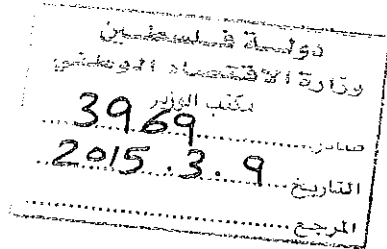 دولة فلسطين
وزارة الاقتصاد الوطني
مكتب الوزير
صادر 3969
التاريخ 2015.3.9
المرجع